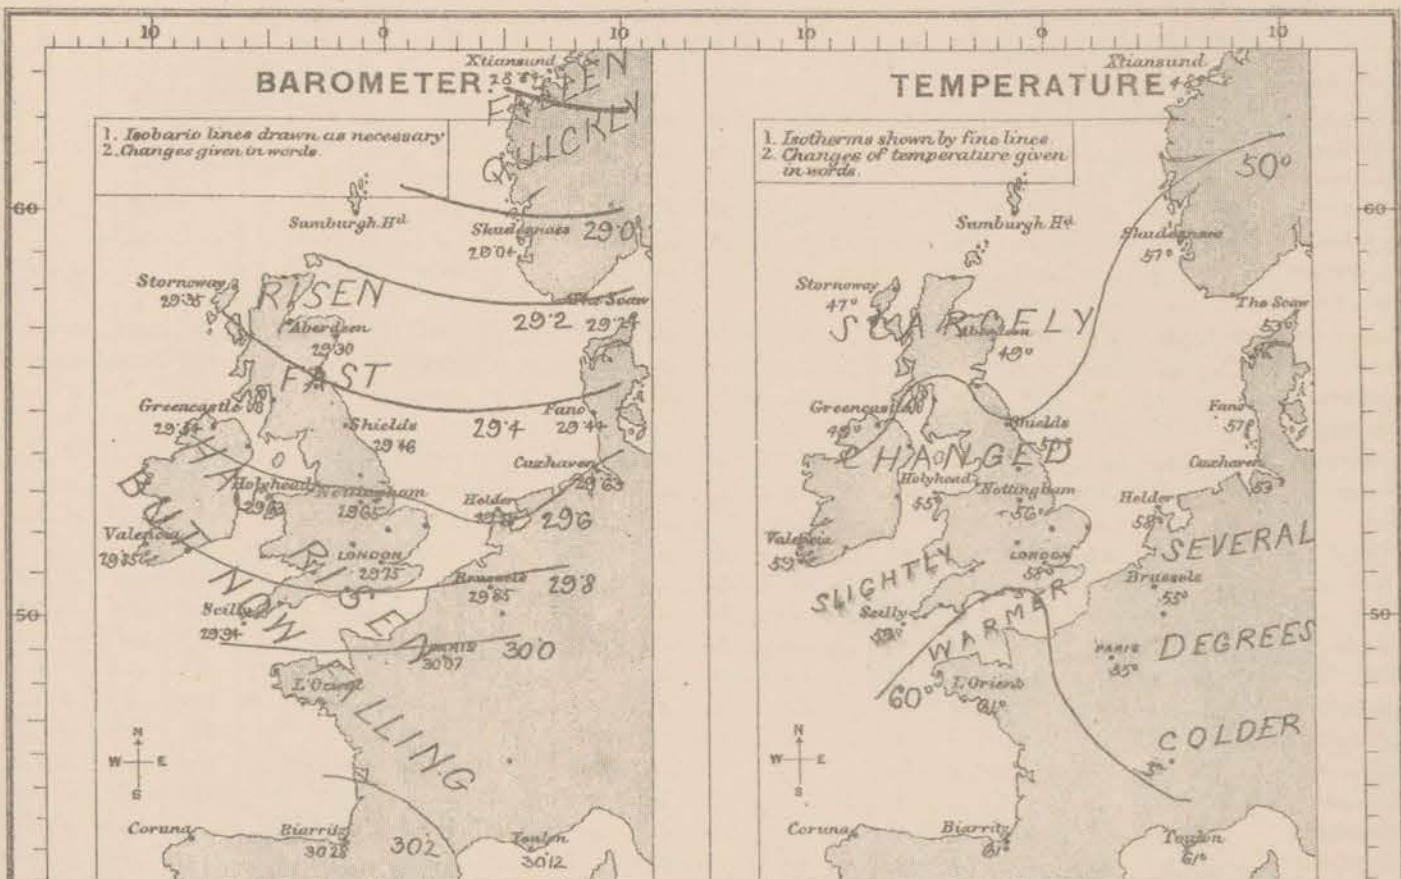 10 0 10
BAROMETER.
1. Isobaric lines drawn as necessary
2. Changes given in words.
Xtiansund
FALLEN
QUICKLY
60
Sumburgh Hd
Skudesnaes
29·0
Stornoway
29·35
RISEN
The Scaw
29·2
Aberdeen
29·30
FAST
Greencastle
Shields
29·46
29·4
Fano
29·44
Cuxhaven
29·63
Holyhead
Nottingham
29·65
Helder
29·6
Valencia
29·85
LONDON
29·75
Brussels
29·85
29·8
HAS RISEN
BUT NOW FALLING
50
Scilly
29·94
PARIS
30·07
30·0
L'Orient
N
W E
S
Coruna
Biarritz
30·28
30·2
Toulon
30·12
10 0 10
TEMPERATURE
1. Isotherms shown by fine lines
2. Changes of temperature given
in words.
Xtiansund
48°
50°
60
Sumburgh Hd
Skudesnaes
57°
Stornoway
47°
SCARCELY
Aberdeen
49°
The Scaw
53°
Greencastle
49°
Shields
50°
Fano
57°
CHANGED
Cuxhaven
53°
Holyhead
55°
Nottingham
56°
Helder
58°
Valencia
59°
LONDON
58°
SEVERAL
SLIGHTLY
Brussels
55°
50
Scilly
59°
WARMER
PARIS
55°
DEGREES
60°
L'Orient
61°
COLDER
N
W E
S
Coruna
Biarritz
61°
Toulon
61°